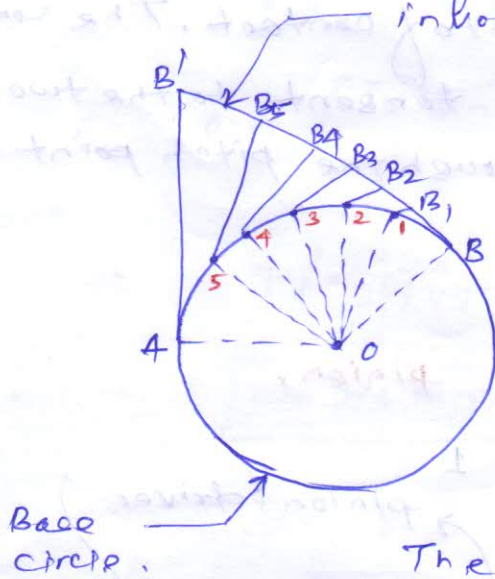 invo
B'
B5
B4
B3
B2
B1
B
5
4
3
2
1
A
O
Base
circle.
The